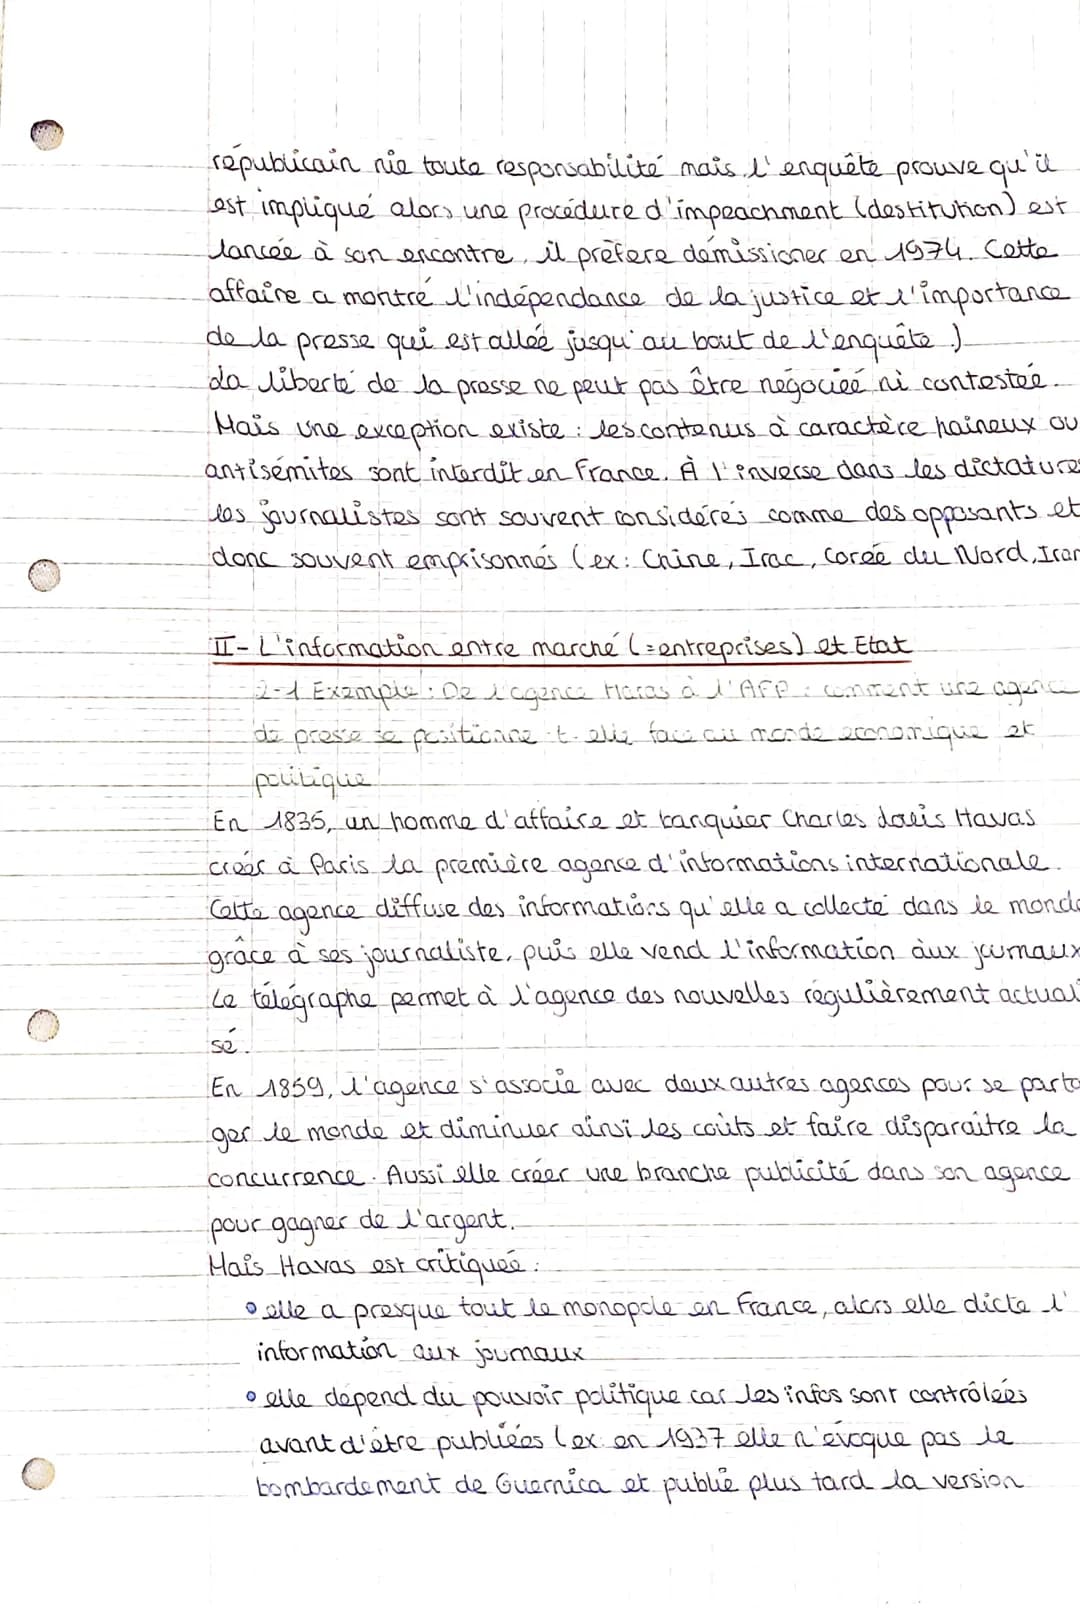 républicain nie toute responsabilité mais l'enquête prouve qu'il
est impliqué alors une procédure d'impeachment (destitution) est
lancée à son encontre, il préfère démissioner en 1974. Cette
affaire a montré l'indépendance de la justice et l'importance
de la presse qui est allée jusqu'au bout de l'enquête.)
La liberté de la presse ne peut pas être négociée ni contestée.
Mais une exception existe : les contenus à caractère haineux ou
antisémites sont interdit en France. À l'inverse dans les dictatures
les journalistes sont souvent considérés comme des opposants et
donc souvent emprisonnés (ex: Chine, Irac, Corée du Nord, Iran
II- L'information entre marché (=entreprises) et Etat
2-1 Exemple : De l'agence Havas à l'AFP : comment une agence
de presse se positionne-t-elle face au monde économique et
politique
En 1835, un homme d'affaire et banquier Charles Louis Havas
créer à Paris la première agence d'informations internationale.
Cette agence diffuse des informations qu'elle a collecté dans le monde
grâce à ses journaliste, puis elle vend l'information aux journaux
Le télégraphe permet à l'agence des nouvelles régulièrement actuali
sé.
En 1859, l'agence s'associe avec deux autres agences pour se parta
ger le monde et diminuer ainsi les coûts et faire disparaitre la
concurrence. Aussi elle créer une branche publicité dans son agence
pour gagner de l'argent.
Mais Havas est critiquée :
• elle a presque tout le monopole en France, alors elle dicte l'
information aux journaux
• elle dépend du pouvoir politique car les infos sont contrôlées
avant d'être publiées (ex en 1937 elle n'évoque pas le
bombardement de Guernica et publie plus tard la version